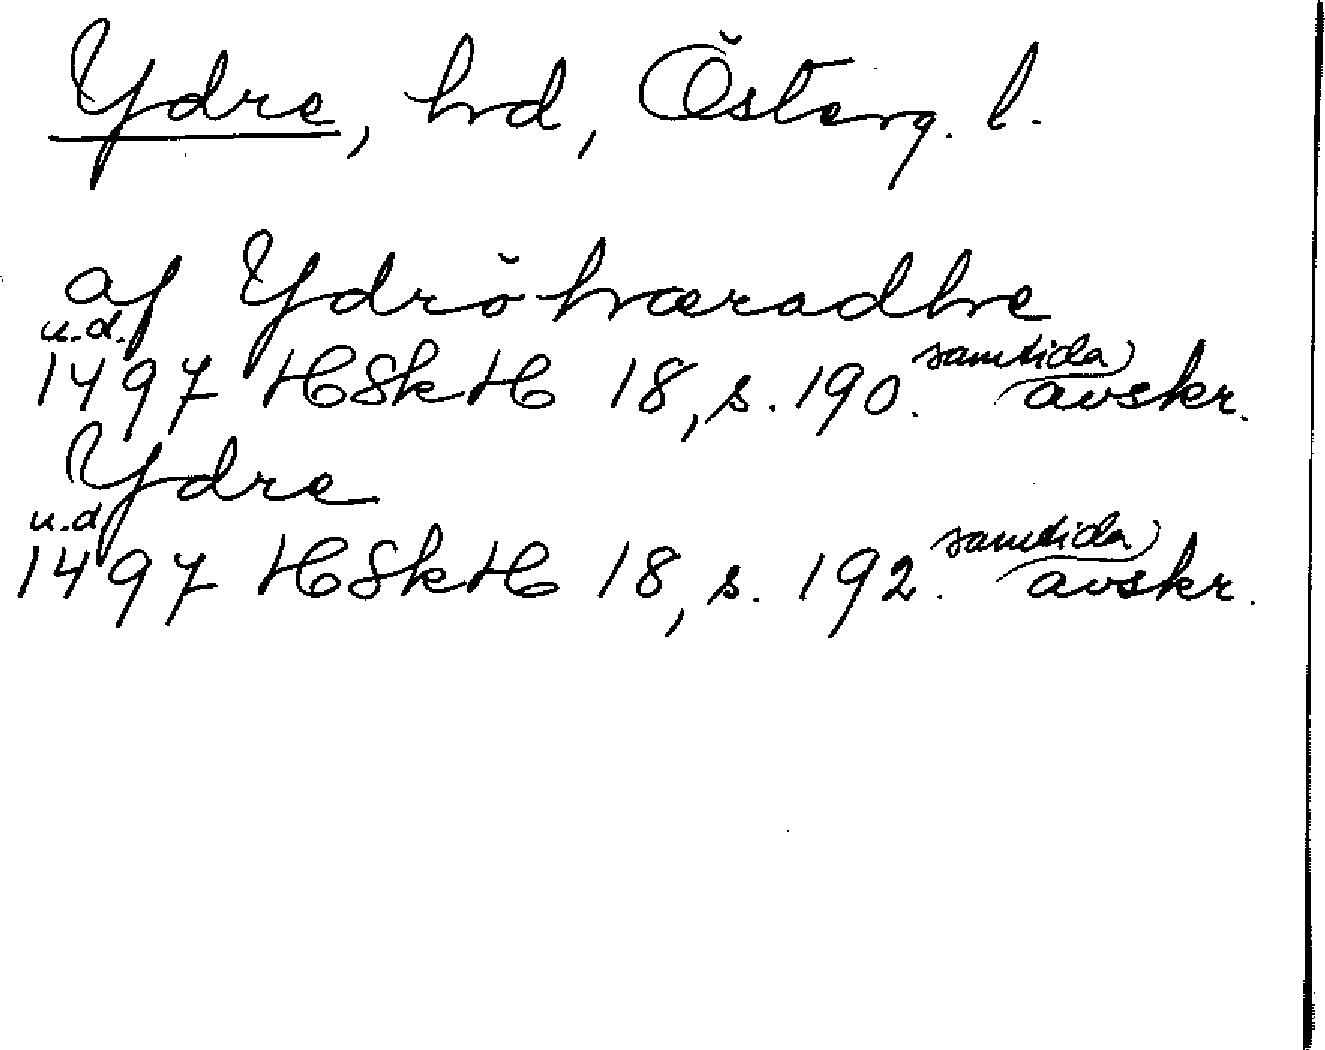 Ydre, hd, Österg. l.
af Ydrö hæradhe
u.d.
1497 HSkH 18, s. 190. samtida avskr.
Ydre
u.d.
1497 HSkH 18, s. 192. samtida avskr.